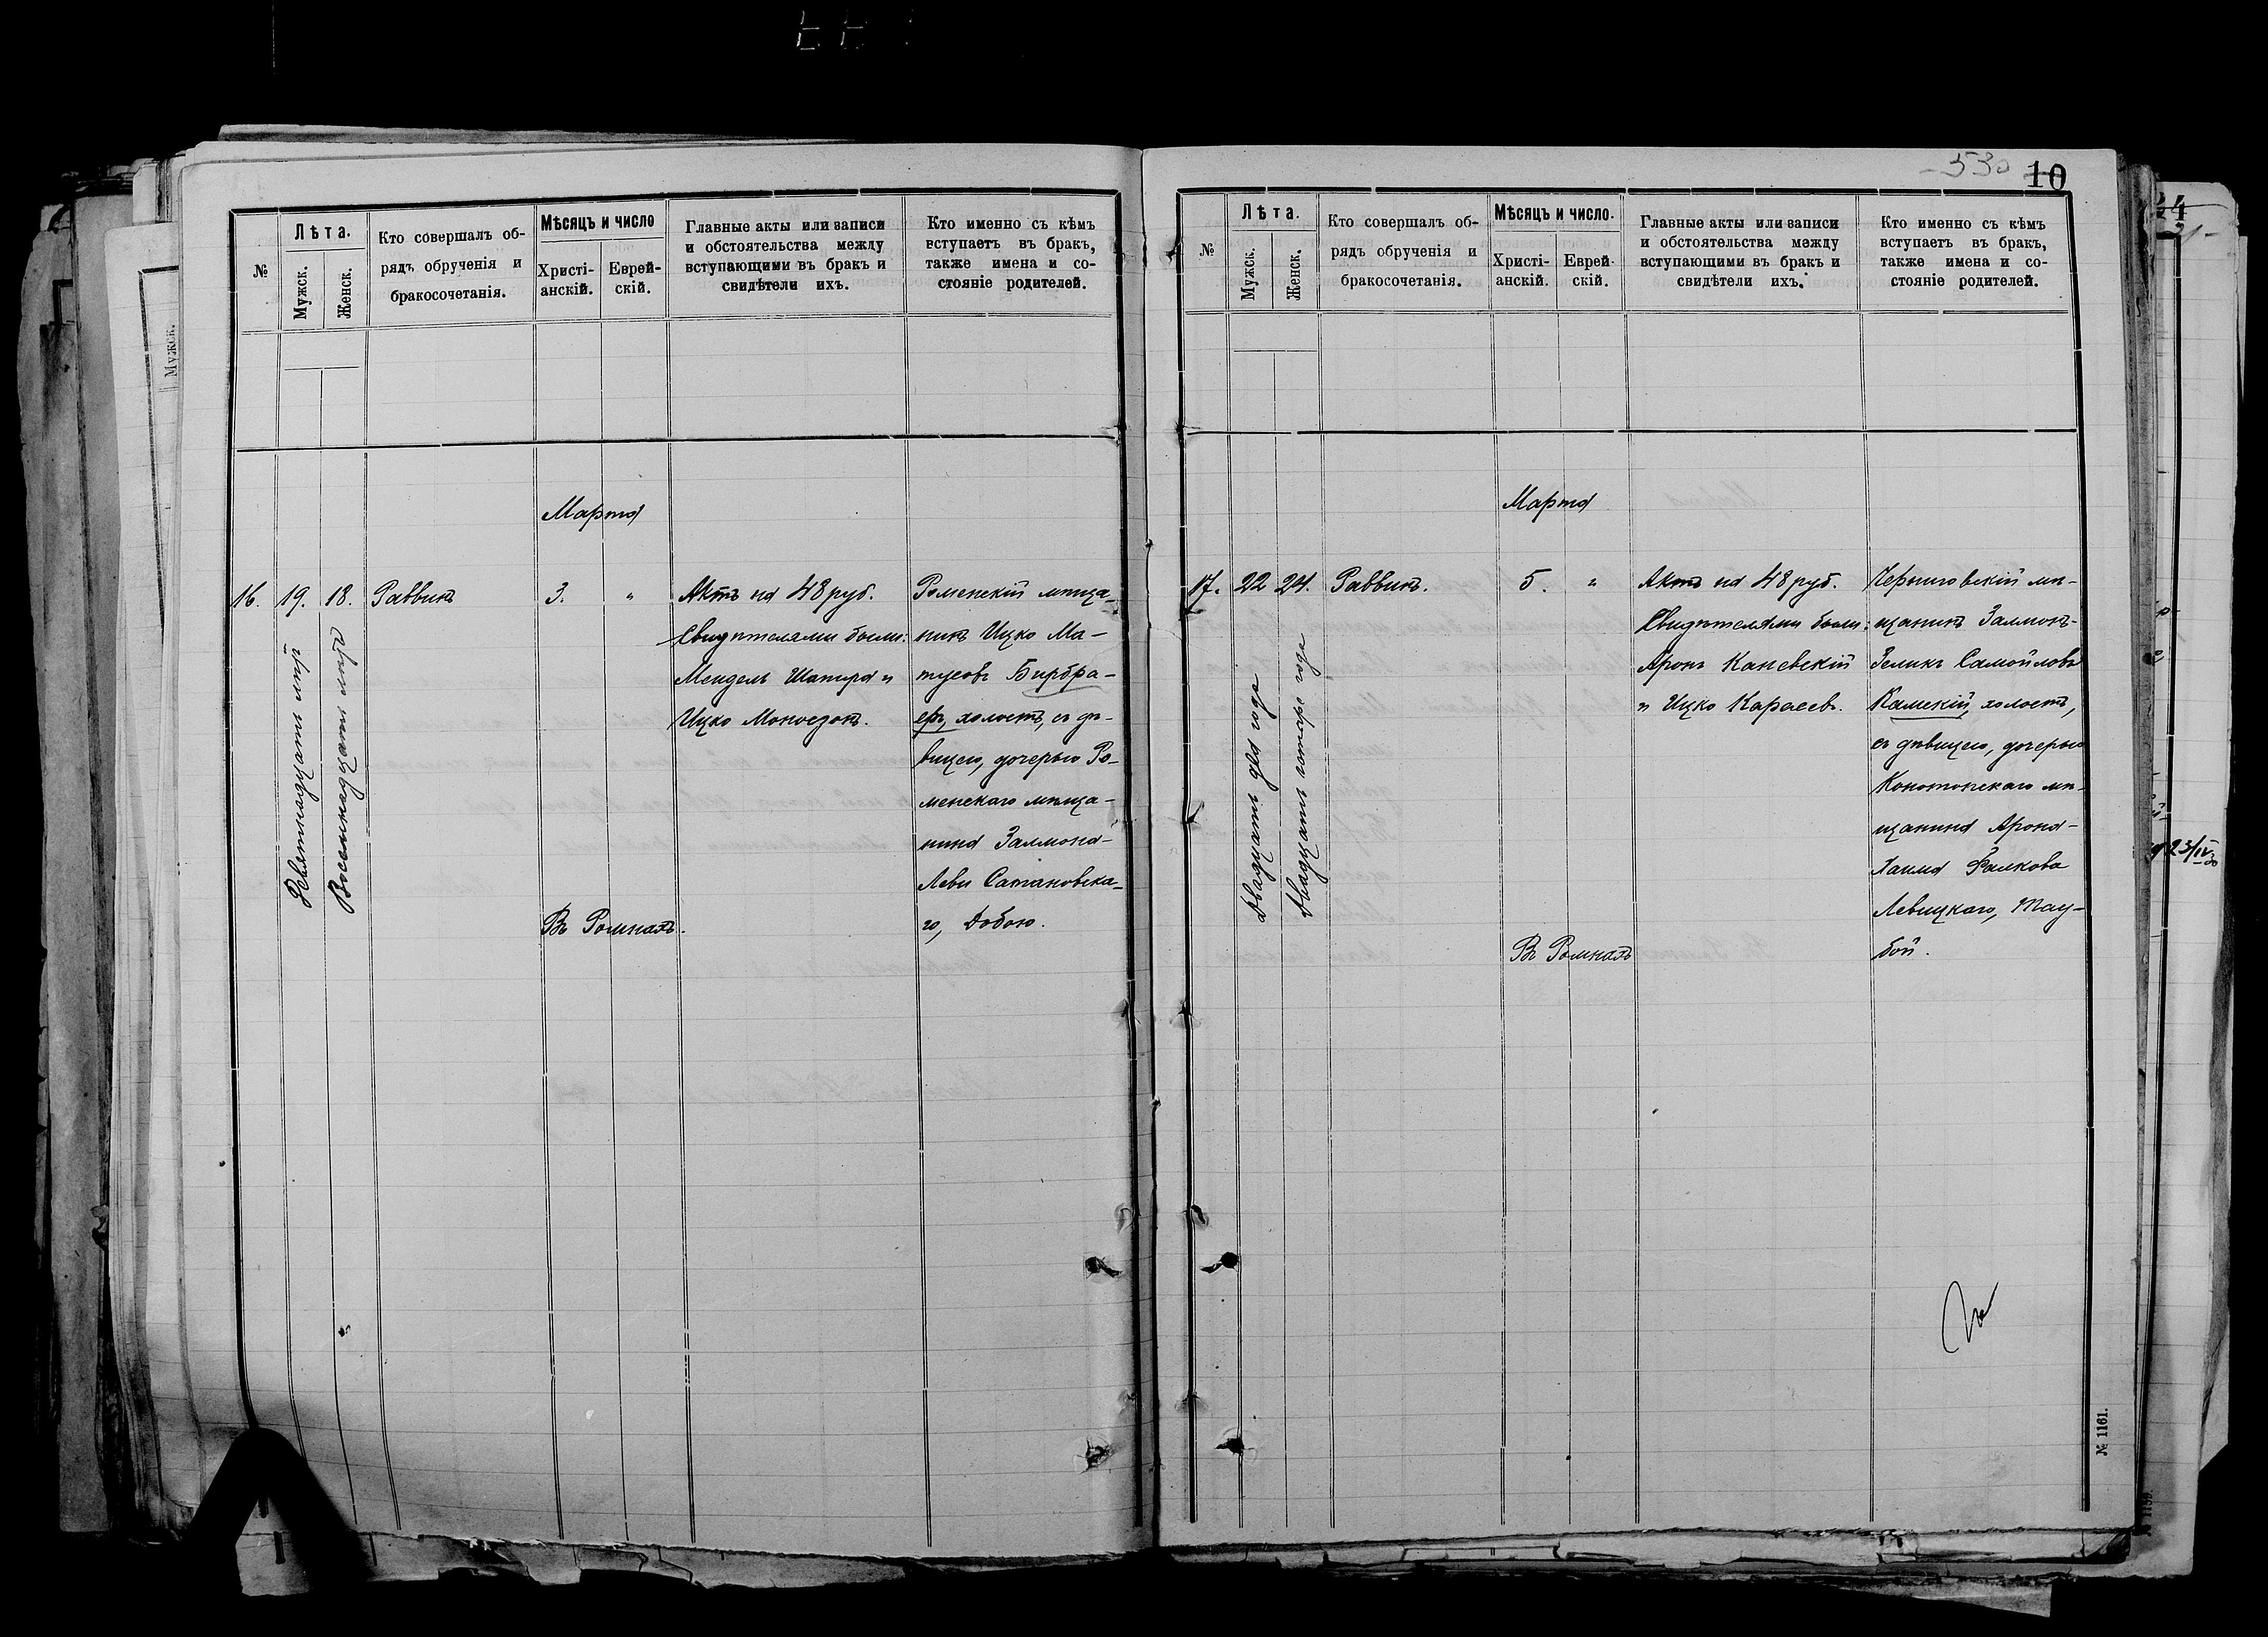 №
Лѣта.
Мужск.
Женск.
Кто совершалъ об-
рядъ обрученія и
бракосочетанія.
Мѣсяцъ и число
Христі-
анскій.
Еврей-
скій.
Главные акты или записи
и обстоятельства между
вступающими въ бракъ и
свидѣтели ихъ.
Кто именно съ кѣмъ
вступаетъ въ бракъ,
также имена и со-
стояніе родителей.
Марта
16. 19. 18. Раввинъ 3. "
Девятнадцать лѣтъ
Восемнадцать лѣтъ
Актъ на 48 руб.
Свидѣтелями были:
Мендель Шапира и
Ицко Моносзонъ.
Роменскій мѣща-
нинъ Ицко Ма-
тусовъ Бирбра-
еръ, холостъ, съ дѣ-
вицею, дочерью Ро-
менскаго мѣща-
нина Залмона-
Леви Сатановска-
го, Добою.
Въ Ромнахъ.
530
10
№
Лѣта.
Мужск.
Женск.
Кто совершалъ об-
рядъ обрученія и
бракосочетанія.
Мѣсяцъ и число.
Христі-
анскій.
Еврей-
скій.
Главные акты или записи
и обстоятельства между
вступающими въ бракъ и
свидѣтели ихъ.
Кто именно съ кѣмъ
вступаетъ въ бракъ,
также имена и со-
стояніе родителей.
Марта
17. 22 24. Раввинъ. 5. "
Двадцать два года
Двадцать четыре года
Актъ на 48 руб.
Свидѣтелями были:
Аронъ Каневскій
и Ицко Карасевъ.
Черниговскій мѣ-
щанинъ Залмонъ-
Зеликъ Самойловъ
Камскій, холостъ,
съ дѣвицею, дочерью
Конотопскаго мѣ-
щанина Арона-
Хаима Фалкова
Левицкаго, Тау-
бой.
Въ Ромнахъ
№ 1161.
Мужск.